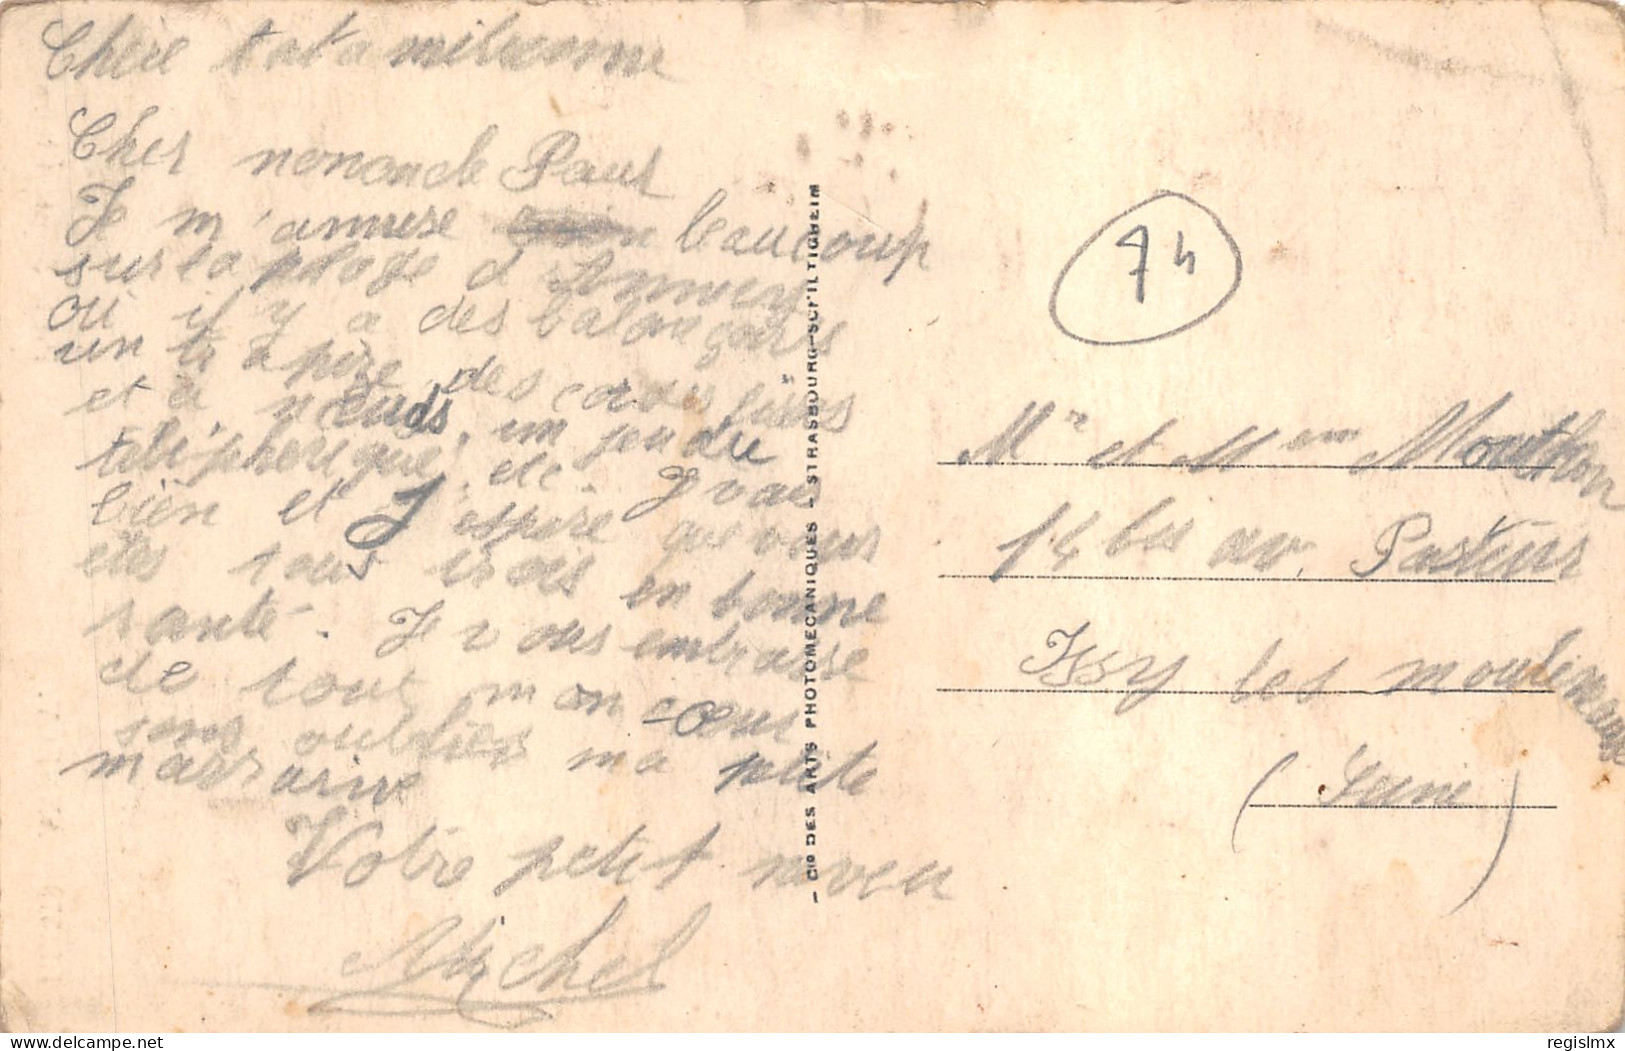 Chère tata
Cher Paul
Je m'amuse beaucoup
sur la plage d'
où il y a des balançoirs
un trapèze, des cordes lisses
et à nœuds, un jeu de
téléphérique, etc. Je vais
bien et J'espère que vous
êtes tous trois en bonne
santé. Je vous embrasse
de tout mon cœur
sans oublier ma petite
marraine
Votre petit neveu
Michel
- Cie DES ARTS PHOTOMECANIQUES - STRASBOURG-SCHILTIGHEIM
74
Mr et Mme Mouthon
14 bis av. Pasteur
Issy les moulineaux
(Seine)
regislmx